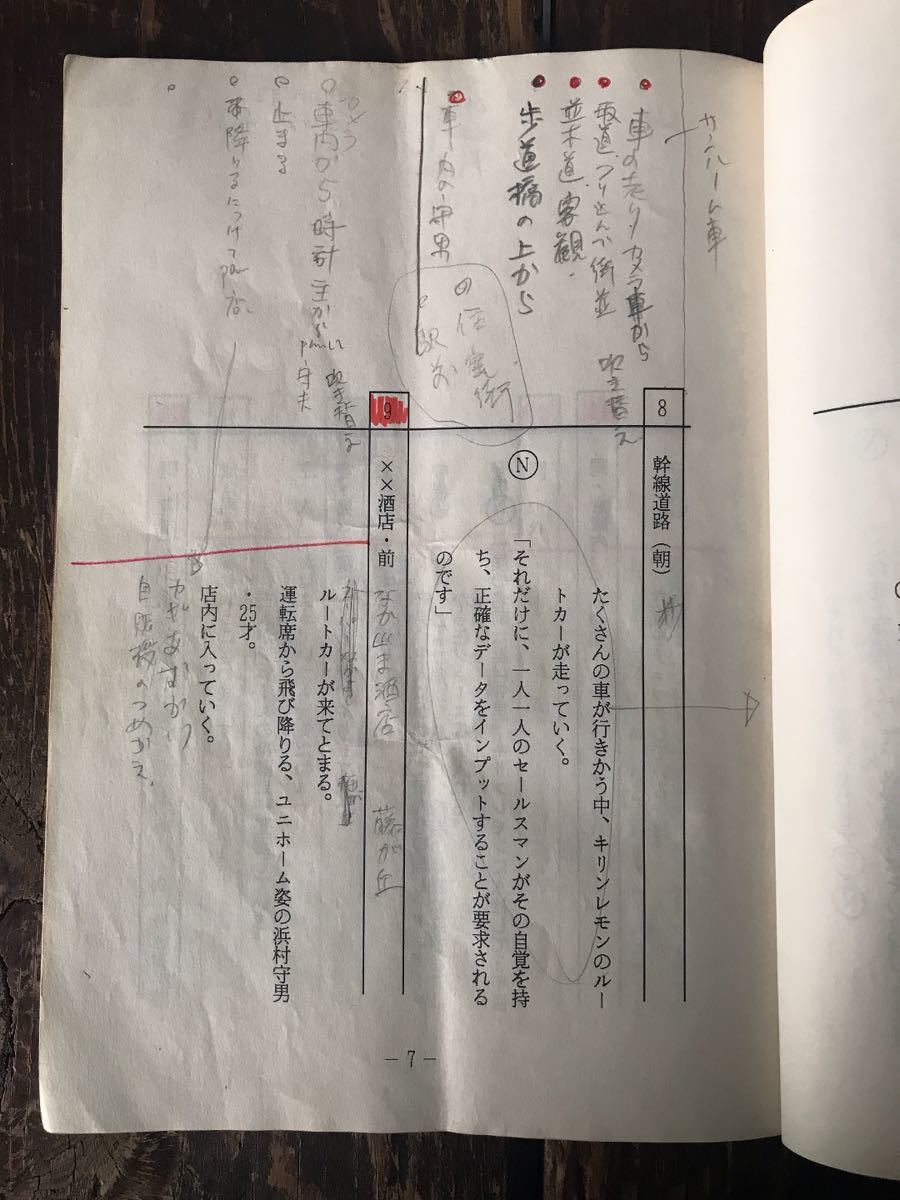 サンルーム車
車の走り カメラ車から
坂道 つり込んで 街並
吹き替え
並木道 客観.
歩道橋の上から
住宅街
駅前
車内の守男
車内から 時計 主から
守夫
吹き替え
止まる
降りるにつけて pan
8
幹線道路（朝）
たくさんの車が行きかう中、キリンレモンのルー
トカーが走っていく。
N
「それだけに、一人一人のセールスマンがその自覚を持
ち、正確なデータをインプットすることが要求される
のです」
9
××酒店・前
なか山ま酒店 藤が丘
ルートカーが来てとまる。
運転席から飛び降りる、ユニホーム姿の浜村守男
・25才。
店内に入っていく。
カギをあずかり
自販機のつめかえ.
－7－